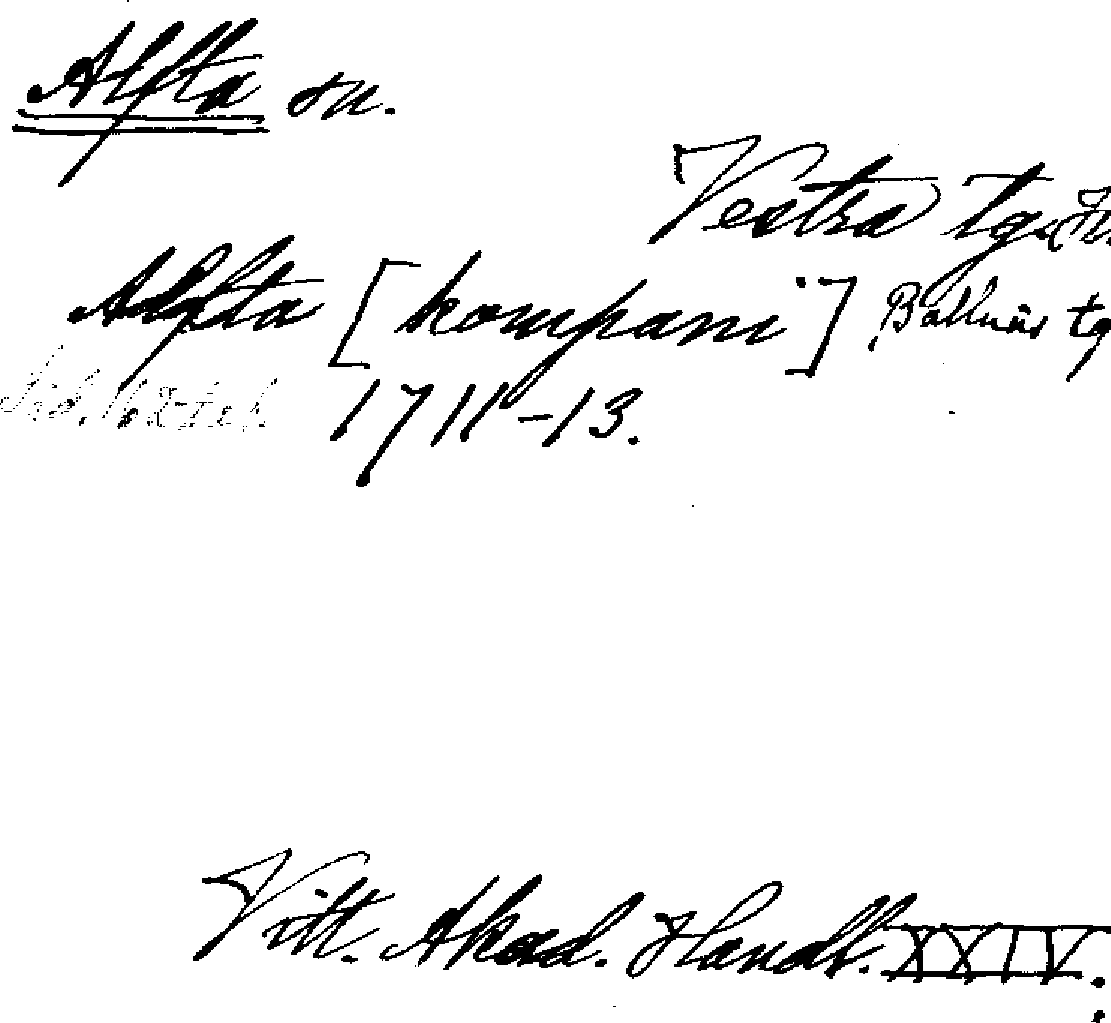 Alfta sn.
Vestra tg
Alfta [kompani] Bollnäs tg
1711-13.
Vitt. Akad. Handl. XXIV.